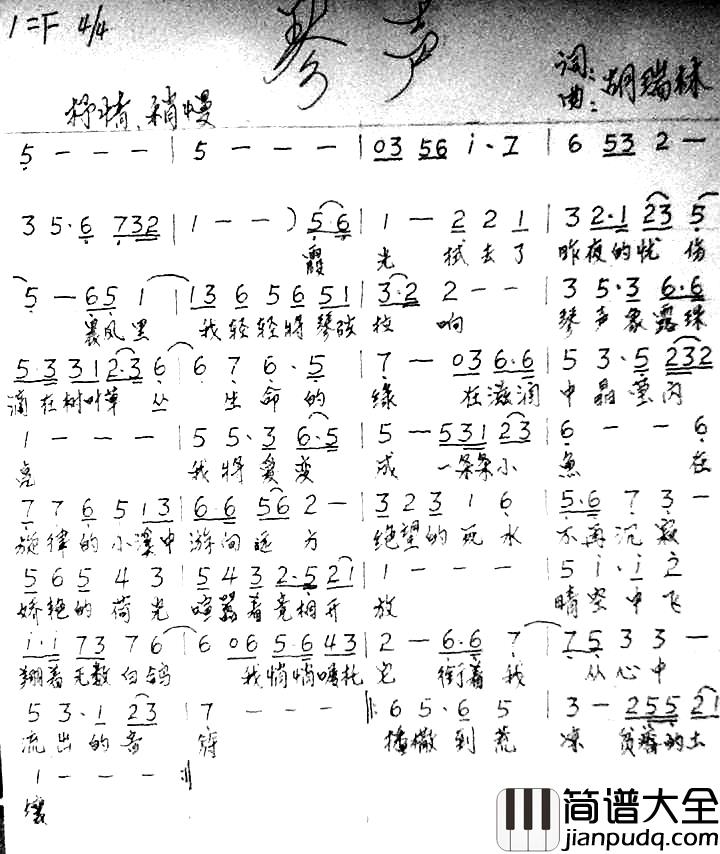 1=F 4/4
琴声
词:
曲: 胡瑞林
抒情、稍慢
5 - - - | 5 - - - | 03 56 i·7 | 6 53 2 -
3 5·6 732 | 1 - - ) 5·6 | 1 - 2 2 1 | 3 2·1 23 5
霞 光 拭去了 昨夜的忧伤
5 - 65 1 | 13 6 5 6 51 | 3·2 2 - - | 3 5·3 6·6
晨风里 我轻轻将琴弦 拉响 琴声象露珠
5·3 31 2·3 6 | 6 7 6·5 | 7 - 03 6·6 | 5 3·5 232
滴在树叶草丛 生命的 绿 在滋润 中晶莹闪
1 - - - | 5 5·3 6·5 | 5 - 531 23 | 6 - - 6
亮 我将爱变 成 一条条小 鱼 在
7 7 6 5 13 | 6·6 56 2 - | 3 2 3 1 6 | 5·6 7 3 -
旋律的小溪中 游向远方 绝望的死水 不再沉寂
5 6 5 4 3 | 5 4 3 2·5 21 | 1 - - - | 5 i·i 2
娇艳的荷光 喧嚣着竞相开 放 晴空中飞
i·i 73 7 6 | 6 06 5·6 43 | 2 - 6·6 7 | 75 3 3 -
翔着无数白鸽 我悄悄嘱托 它 衔着我 从心中
5 3·1 23 | 7 - - - |: 6 5·6 5 | 3 - 255 21
流出的音 符 播撒到荒 凉 贫瘠的土
1 - - - :||
壤
简谱大全
jianpudq.com